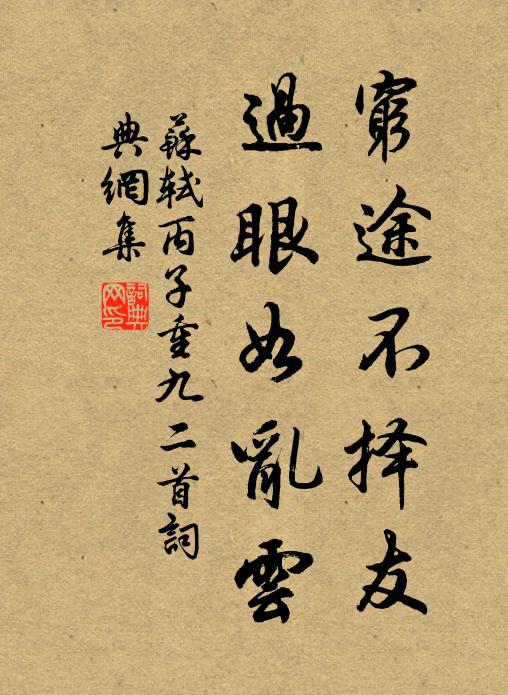 窮途不择友
過眼如亂雲
蘇軾丙子重九二首詞
典網集
詞典
网印